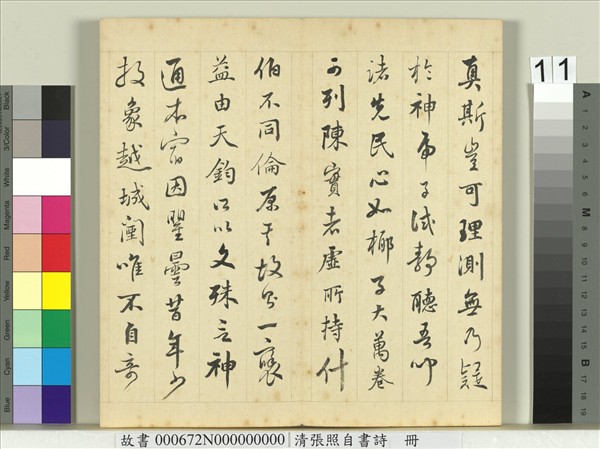 真斯豈可理測無乃疑
於神子試靜聽吾叩
諸先民心如椰子大萬卷
可列陳實者虛所持什
伯不同倫原其故一
益由天鈞以文殊言神
通本宿因瞿曇昔年少
投象越城闉唯不自奇
故書 000672N000000000 清張照自書詩 冊
11
Black
3/Color
White
Magenta
Red
Yellow
Green
Cyan
Blue
A
1
2
3
4
5
6
M
8
9
10
11
12
13
14
15
B
17
18
19